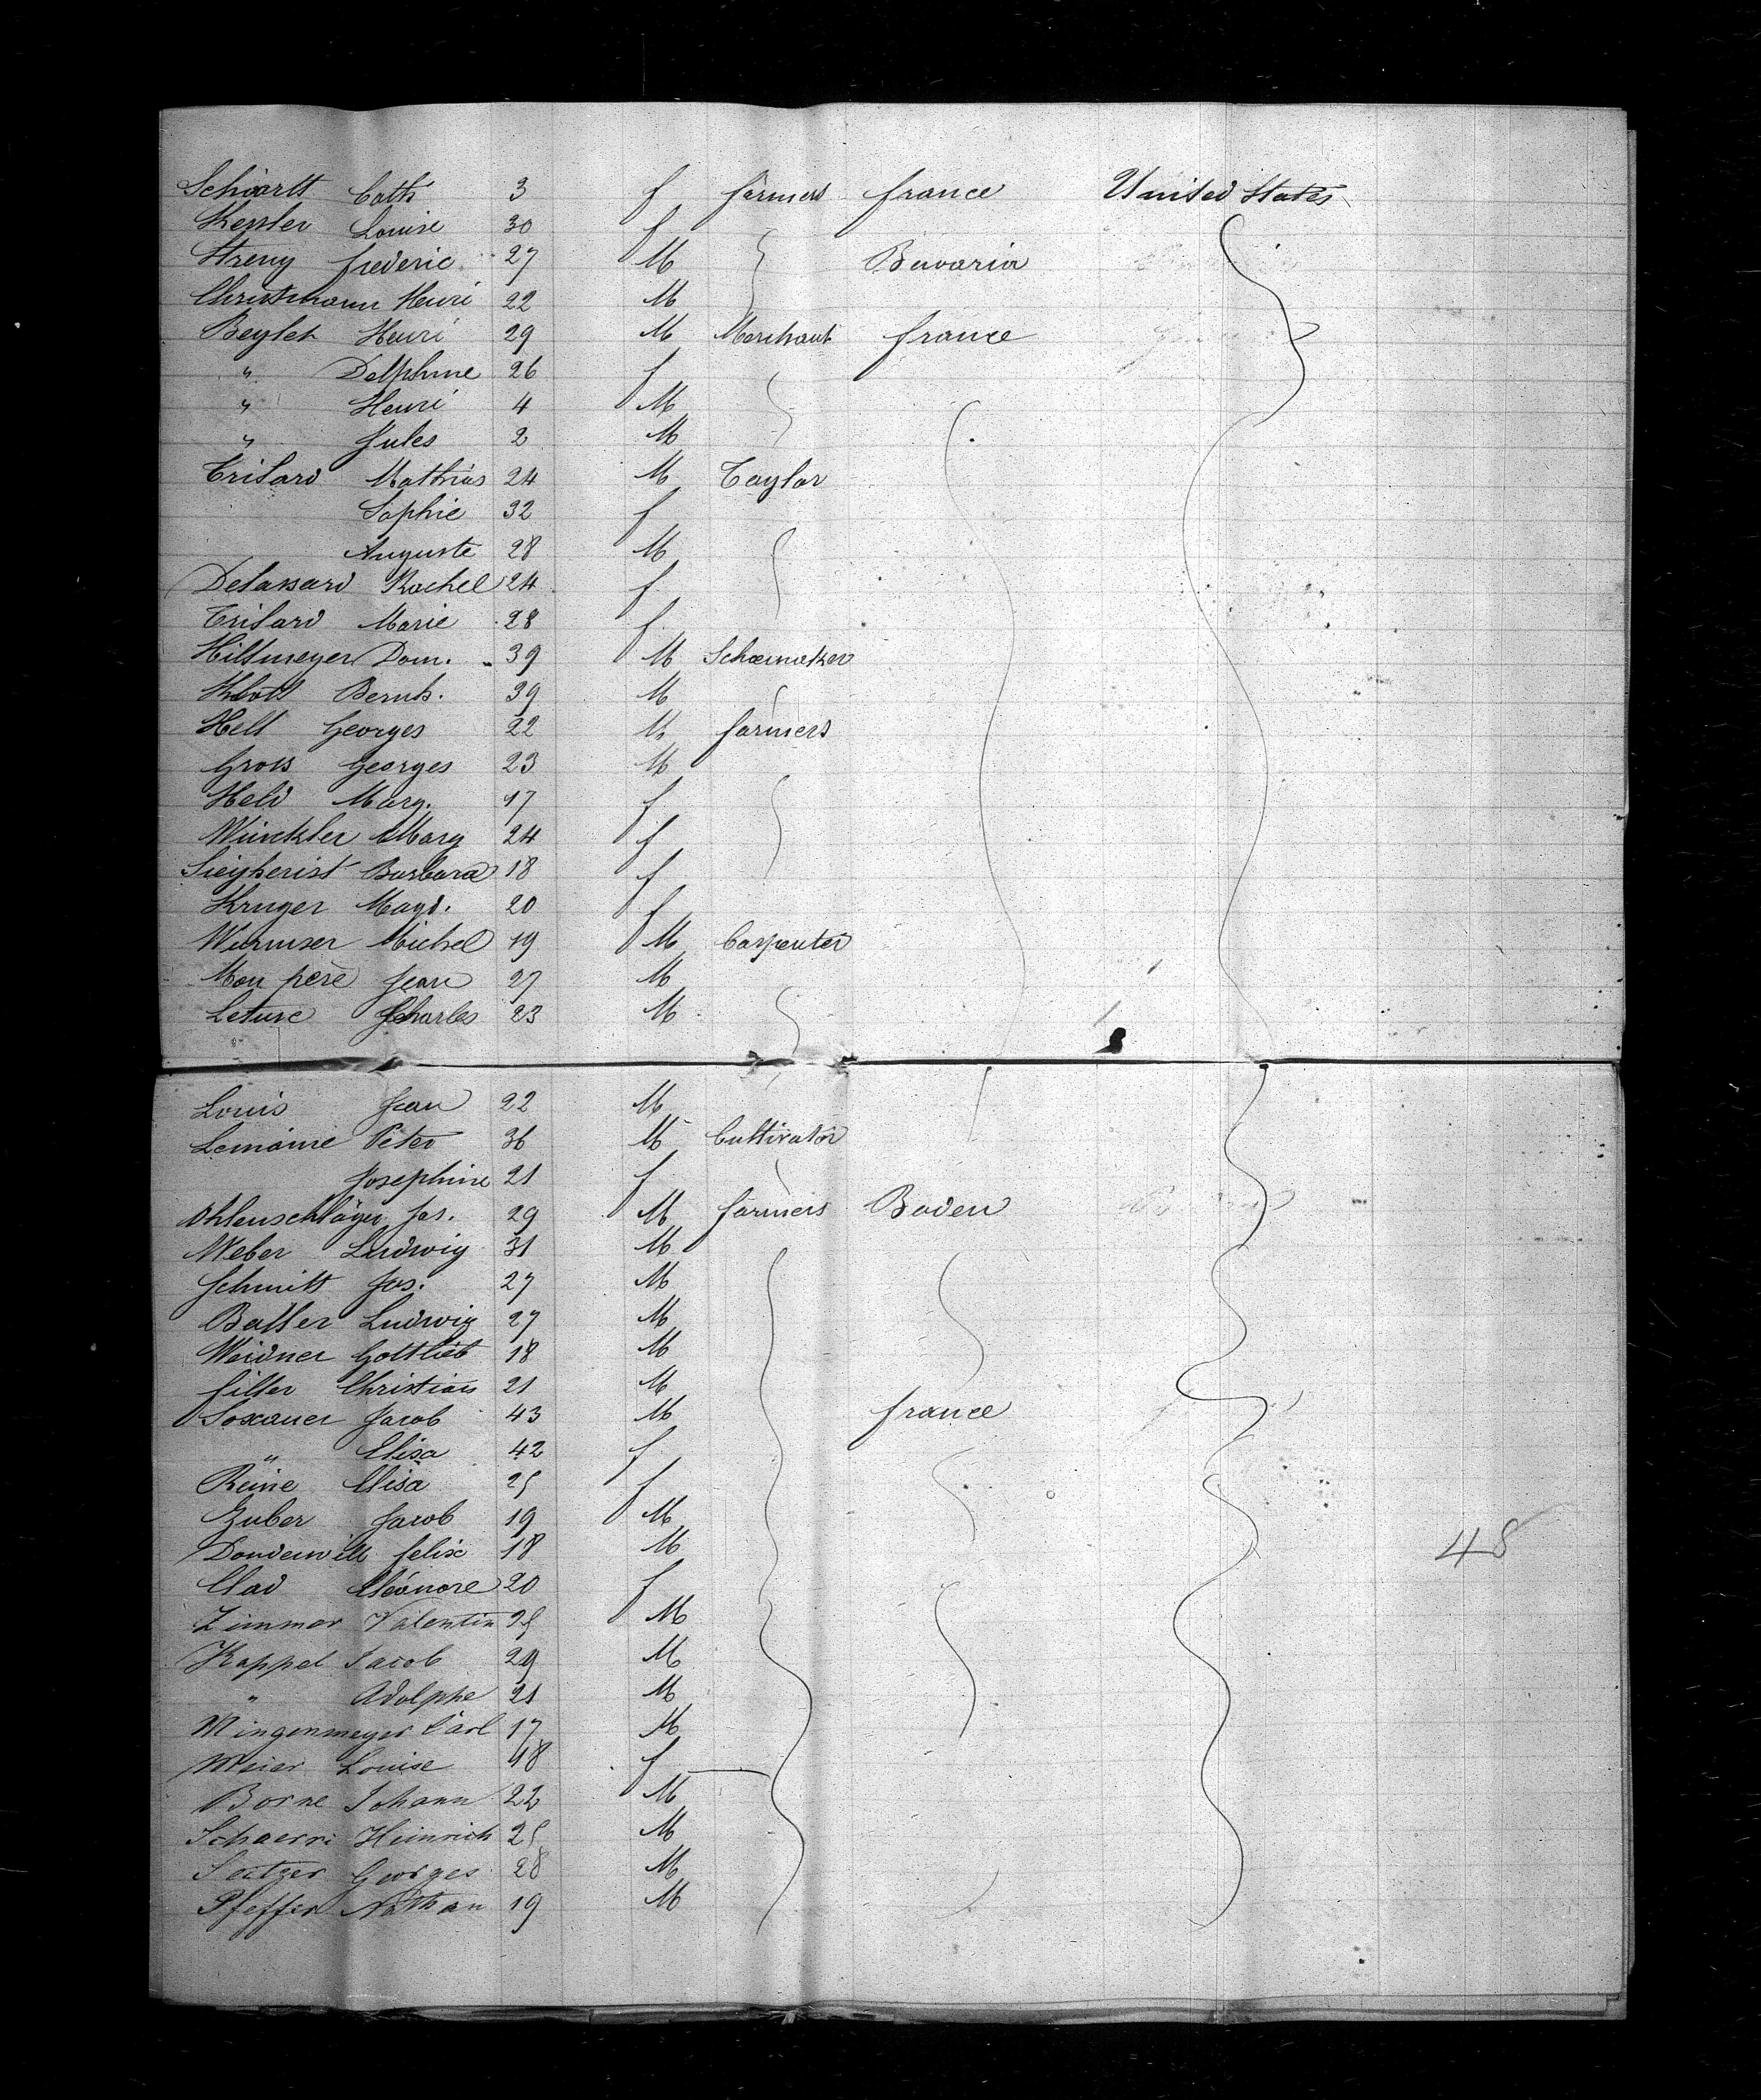 Schwartt Cath 3 f farmers france United States
Kessler Louise 30 f
Streng frederic 27 M Bavaria
Christmann Henri 22 M
Beylet Henri 29 M Merchant france
" Delphine 26 f
" Henri 4 M
" Jules 2 M
Trisard Mathias 24 M Taylor
Sophie 32 f
Auguste 28 M
Delassard Rachel 24 f
Trisard Marie 28 f
Hiltmeyer Dom. 39 M Schoemaker
Klott Bernh. 39 M
Helt Georges 22 M farmers
Gross Georges 23 M
Held Marg. 17 f
Winckler Mary 24 f
Siegherist Barbara 18 f
Kruger Magd. 20 f
Wurmser Michel 19 M Carpenter
Mon père Jean 27 M
Leturc Charles 23 M
Louis Jean 22 M
Lemaire Peter 36 M Cultivator
Josephine 21 f
Ohlenschläger Jos. 29 M farmers Baden
Weber Ludwig 31 M
Schmitt Jos. 27 M
Baller Ludwig 27 M
Weidner Gottlieb 18 M
filler Christian 21 M
Soxauer Jacob 43 M france
" Elisa 42 f
Reine Elisa 25 f
Zuber Jacob 19 M
Dondenvill felix 18 M
Clad Eléonore 20 f
48
Zimmer Valentin 25 M
Kappel Jacob 29 M
" Adolphe 21 M
Mingenmeyer Carl 17 M
Meier Louise 18 f
Borne Johann 22 M
Schaerri Heinrich 25 M
Seitzer Georges 28 M
Pfeffer Nathan 19 M